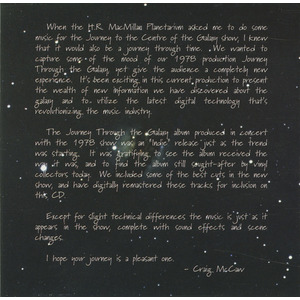 When the H.R. MacMillan Planetarium asked me to do some
music for the Journey to the Centre of the Galaxy show, I knew
that it would also be a journey through time. We wanted to
capture some of the mood of our 1978 production Journey
Through the Galaxy, yet give the audience a completely new
experience. It's been exciting in this current production to present
the wealth of new information we have discovered about the
galaxy and to utilize the latest digital technology that's
revolutionizing the music industry.
The Journey Through the Galaxy album produced in concert
with the 1978 show was an "indy" release just as the trend
was starting. It was gratifying to see the album received the way
it was, and to find the album still sought-after by vinyl
collectors today. We included some of the best cuts in the new
show, and have digitally remastered these tracks for inclusion on
this CD.
Except for slight technical differences the music is just as it
appears in the show, complete with sound effects and scene
changes.
I hope your journey is a pleasant one.
- Craig McCaw